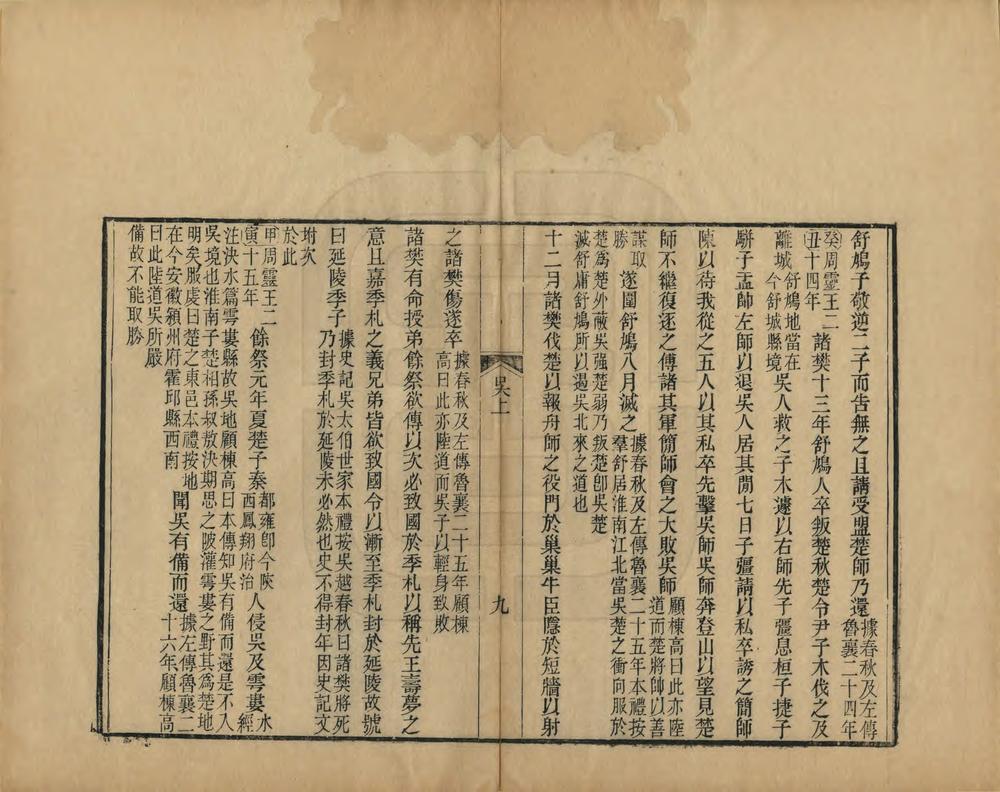 舒鳩子敬逆二子而告無之且請受盟楚師乃還據春秋及左傳魯襄二十四年
癸丑周靈王二十四年諸樊十三年舒鳩人卒叛楚秋楚令尹子木伐之及
離城舒鳩地當在今舒城縣境吳人救之子木遽以右師先子彊息桓子捷子
駢子盂帥左師以退吳人居其閒七日子彊請以私卒誘之簡師
陳以待我從之五人以其私卒先擊吳師吳師奔登山以望見楚
師不繼復逐之傅諸其軍簡師會之大敗吳師顧棟高曰此亦陸道而楚將帥以善
謀取勝遂圍舒鳩八月滅之據春秋及左傳魯襄二十五年本禮按羣舒居淮南江北當吳楚之衝向服於
楚爲楚外蔽吳强楚弱乃叛楚卽吳楚滅舒庸舒鳩所以遏吳北來之道也
十二月諸樊伐楚以報舟師之役門於巢巢牛臣隱於短牆以射
吳上
九
之諸樊傷遂卒據春秋及左傳魯襄二十五年顧棟高曰此亦陸道而吳子以輕身致敗
諸樊有命授弟餘祭欲傳以次必致國於季札以稱先王壽夢之
意且嘉季札之義兄弟皆欲致國令以漸至季札封於延陵故號
曰延陵季子據史記吳太伯世家本禮按吳越春秋曰諸樊將死乃封季札於延陵未必然也史不得封年因史記文
坿次於此
甲寅周靈王二十五年餘祭元年夏楚子秦都雍卽今陝西鳳翔府治人侵吳及雩婁水經
注決水篇雩婁縣故吳地顧棟高曰本傳知吳有備而還是不入吳境也淮南子楚相孫叔敖決期思之陂灌雩婁之野其爲楚地
明矣服虔曰楚之東邑本禮按地在今安徽潁州府霍邱縣西南聞吳有備而還據左傳魯襄二十六年顧棟高
曰此陸道吳所嚴備故不能取勝